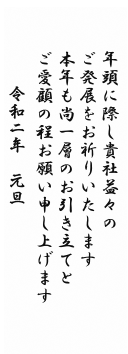 年頭に際し貴社益々の
ご発展をお祈りいたします
本年も尚一層のお引き立てと
ご愛顧の程お願い申し上げます
令和二年　元旦